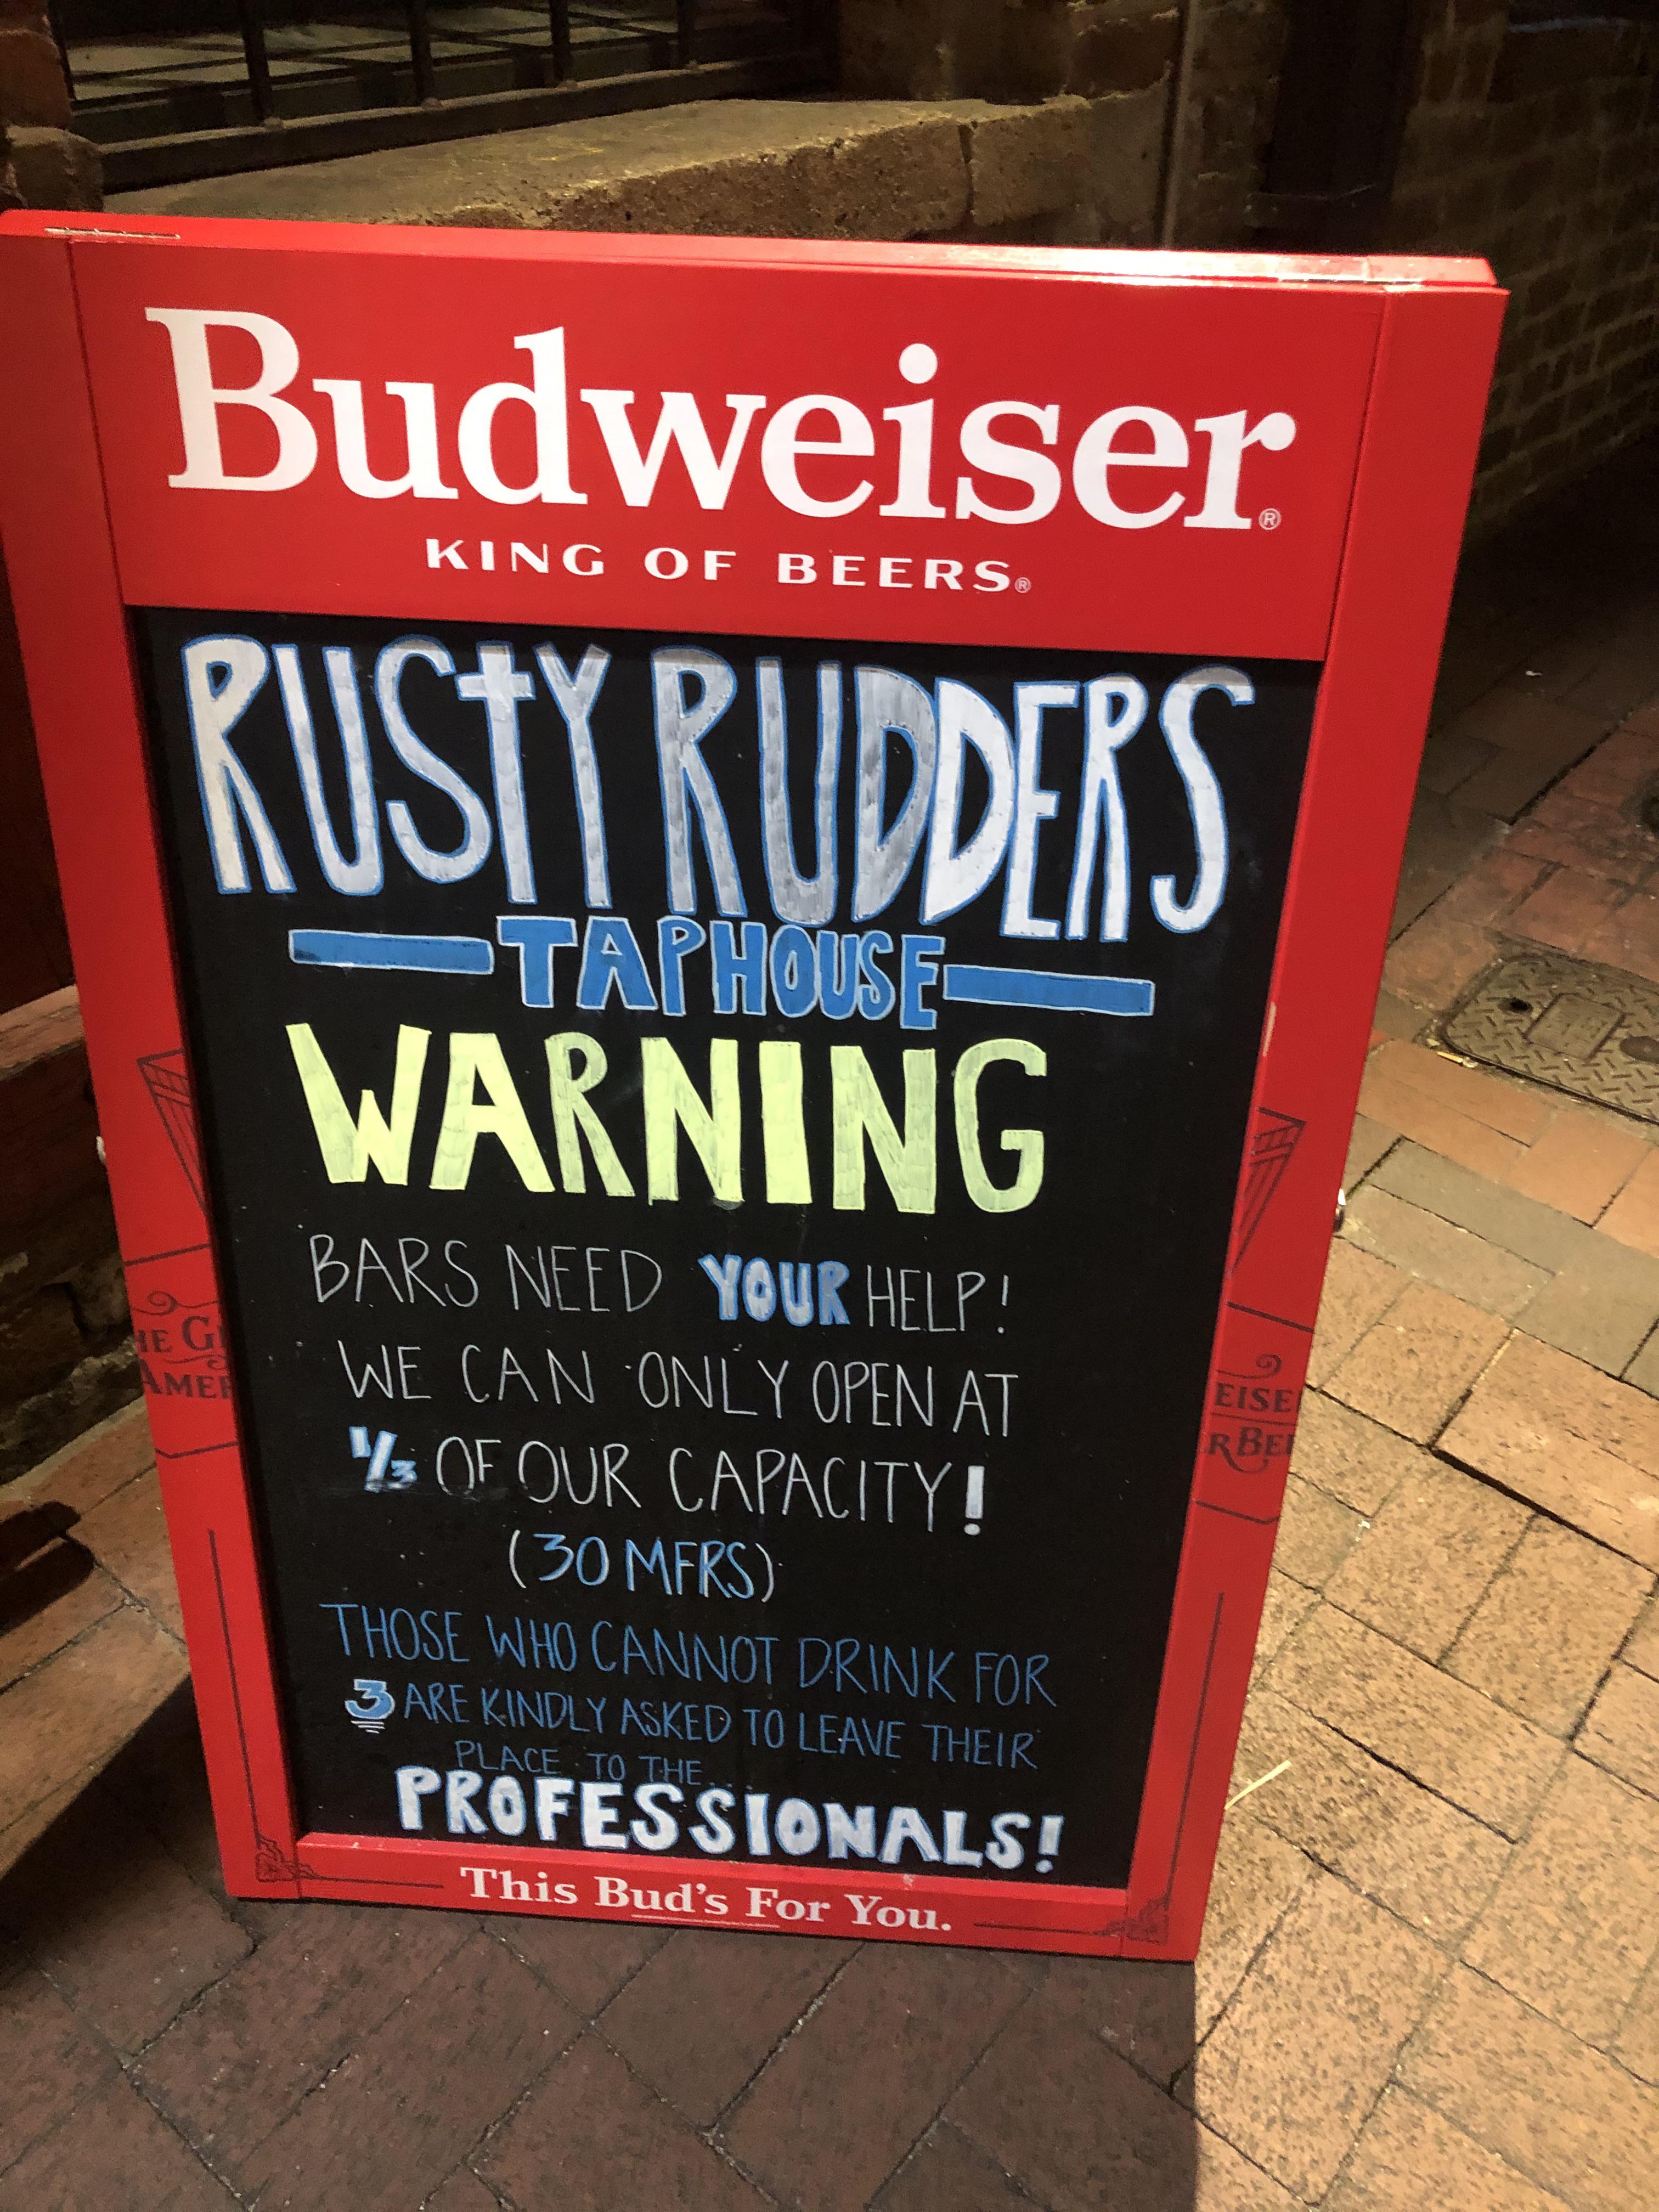 Budweiser®
KING OF BEERS®
RUSTY RUDDERS
TAPHOUSE
WARNING
BARS NEED YOUR HELP!
WE CAN ONLY OPEN AT
1/3 OF OUR CAPACITY!
(30 MFRS)
THOSE WHO CANNOT DRINK FOR
3 ARE KINDLY ASKED TO LEAVE THEIR
PLACE TO THE...
PROFESSIONALS!
This Bud's For You.